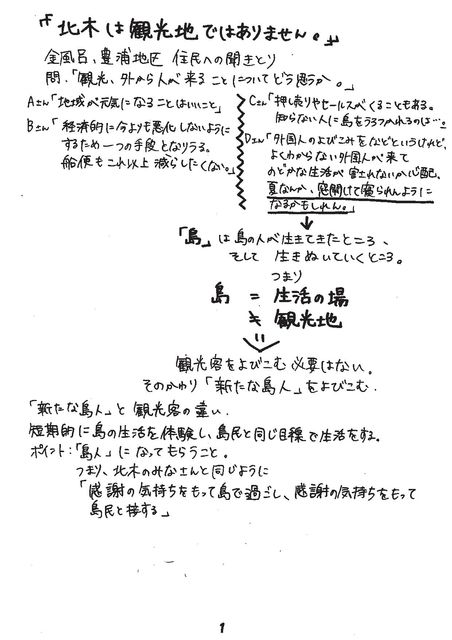 「北木は観光地ではありません。」
金風呂、豊浦地区 住民への聞きとり
問.「観光、外から人が来ることについてどう思うか。」
Aさん「地域が元気になることはいいこと」
Bさん「経済的に今よりも悪化しないように
するため一つの手段となりうる。
船便もこれ以上減らしたくない。」
Cさん「押し売りやセールスがくることもある。
知らない人に島をうろつかれるのは…。」
Dさん「外国人のよびこみをなどというけれど、
よくわからない外国人が来て
のどかな生活が害されないか心配、
夏なんか、窓開けて寝られんように
なるかもしれん。」
「島」は島の人が生きてきたところ、
そして 生きぬいていくところ。
つまり
島 = 生活の場
≠ 観光地
観光客をよびこむ必要はない。
そのかわり「新たな島人」をよびこむ.
「新たな島人」と観光客の違い.
短期的に島の生活を体験し、島民と同じ目標で生活をする。
ポイント:「島人」になってもらうこと。
つまり、北木のみなさんと同じように
「感謝の気持ちをもって島で過ごし、感謝の気持ちをもって
島民と接する」
1